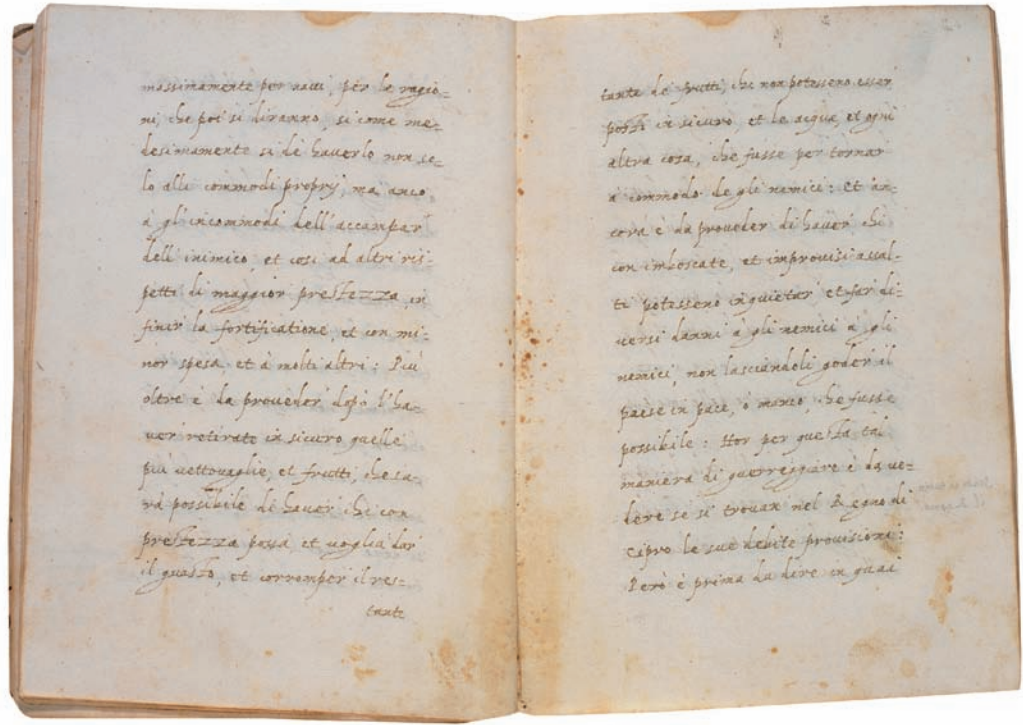 massimamente per navi, per le ragio=
ni, che poi si diranno, si come me=
desimamente si dè haverlo non so=
lo alli commodi proprij, ma anco
à gl'incommodi dell'accampar
dell'inimico, et cosi ad altri ris=
petti di maggior prestezza in
finir la fortificatione, et con mi=
nor spesa, et à molti altri: Più
oltre è da proveder, dopò l'ha=
ver retirate in sicuro quelle
più vettovaglie, et frutti, che sa=
rà possibile di haver chi con
prestezza possa et voglia dar
il guasto, et corromper il res=
tante
tante de frutti, che non potesseno esser
posti in sicuro, et le acqua, et ogni
altra cosa, che fusse per tornar
a commodo de gli nemici: et an=
cora è da proveder di haver chi
con imboscate, et improvisi assal=
ti potesseno inquietar et far di=
versi danni à gli nemici à gli
nemici, non lasciandoli goder il
paese in pace, ò manco, che fusse
possibile: Hor per questa tal
maniera di guerreggiare è da ve=
dere se si trovan nel Regno di
Cipro le sue debite provisioni:
Però è prima da dire in quai